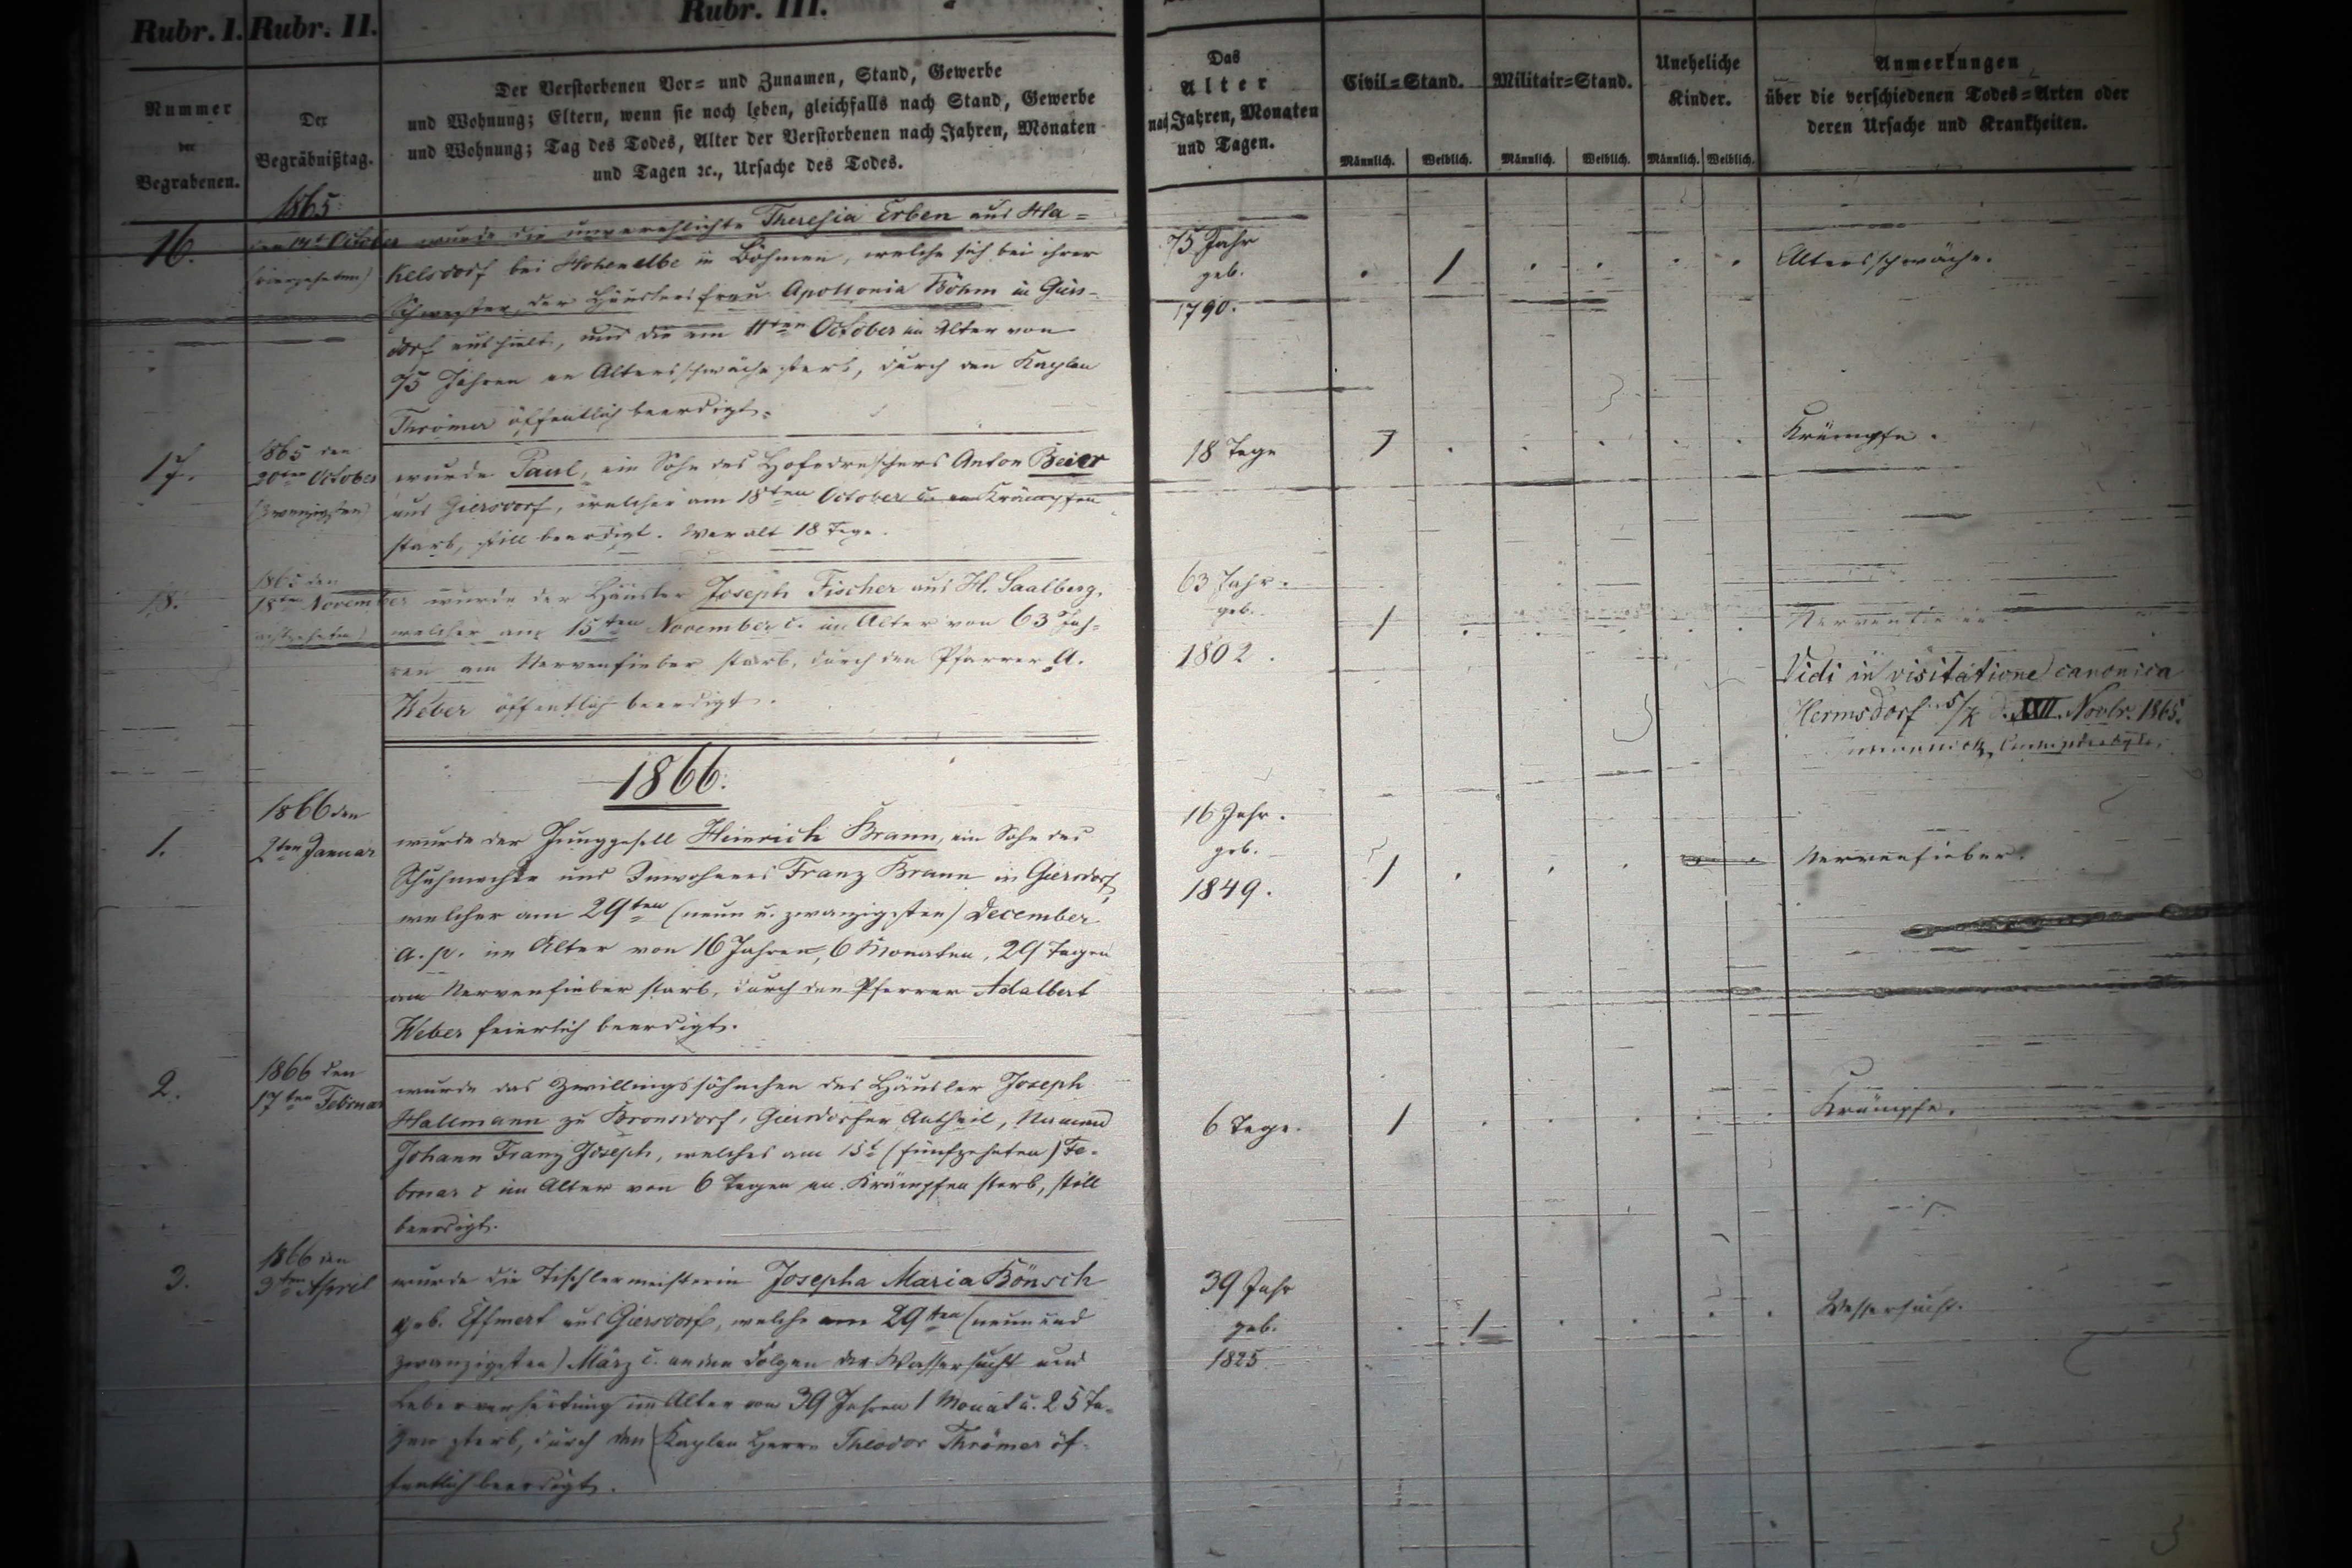 Rubr. I. Rubr. II. Rubr. III.
Nummer der Begrabenen.
Der Begräbnißtag.
Der Verstorbenen Vor- und Zunamen, Stand, Gewerbe
und Wohnung; Eltern, wenn sie noch leben, gleichfalls nach Stand, Gewerbe
und Wohnung; Tag des Todes, Alter der Verstorbenen nach Jahren, Monaten
und Tagen ꝛc., Ursache des Todes.
Das
Alter
nach Jahren, Monaten
und Tagen.
Civil-Stand.
Männlich. Weiblich.
Militair-Stand.
Männlich. Weiblich.
Uneheliche
Kinder.
Männlich. Weiblich.
Anmerkungen
über die verschiedenen Todes-Arten oder
deren Ursache und Krankheiten.
1865.
16.
den 14t October
(vierzehnten)
wurde die unverehlichte Theresia Erben aus Ha-
kelsdorf bei Hohenelbe in Böhmen, welche sich bei ihrer
Schwester, der Häuslersfrau Apollonia Böhm in Giers-
dorf aufhielt, und die am 11ten October im Alter von
75 Jahren an Altersschwäche starb, durch den Kaplan
Thrömer öffentlich beerdigt.
75 Jahr
geb.
1790.
1
Altersschwäche.
17.
1865 den
20ten October
(zwanzigsten)
wurde Paul, ein Sohn des Hofedreschers Anton Beier
aus Giersdorf, welcher am 18ten October c. an Krämpfen
starb, still beerdigt. War alt 18 Tage.
18 Tage
1
Krämpfe.
18.
1865 den
18ten November
(achtzehnten)
wurde der Häusler Joseph Fischer aus H. Saalberg,
welcher am 15ten November c. im Alter von 63 Jah-
ren am Nervenfieber starb, durch den Pfarrer A.
Weber öffentlich beerdigt.
63 Jahr.
geb.
1802.
1
Nervenfieber
Vidi in visitatione canonica
Hermsdorf s/K d. XXII. Novbr. 1865.
1866.
1.
1866 den
2ten Januar
wurde der Junggesell Heinrich Brann, ein Sohn des
Schuhmacher und Inwohners Franz Brann in Giersdorf,
welcher am 29ten (neun u. zwanzigsten) December
a. p. im Alter von 16 Jahren, 6 Monaten, 29 Tagen
am Nervenfieber starb, durch den Pfarrer Adalbert
Weber feierlich beerdigt.
16 Jahr.
geb.
1849.
1
Nervenfieber.
2.
1866 den
17ten Februar
wurde das Zwillingssöhnchen des Häusler Joseph
Hallmann zu Bronsdorf, Giersdorfer Antheil, Namens
Johann Franz Joseph, welches am 15t (fünfzehnten) Fe-
bruar c im Alter von 6 Tagen an Krämpfen starb, still
beerdigt.
6 Tage.
1
Krämpfe.
3.
1866 den
3ten April
wurde die Tischlermeisterin Josepha Maria Bönsch
geb. Effmert aus Giersdorf, welche am 29ten (neun und
zwanzigsten) März c. an den Folgen der Wassersucht und
Leberverhärtung im Alter von 39 Jahren 1 Monat u. 25 Ta-
gen starb, durch den Kaplan Herrn Theodor Thrömer öf-
fentlich beerdigt.
39 Jahr
geb.
1825
1
Wassersucht.